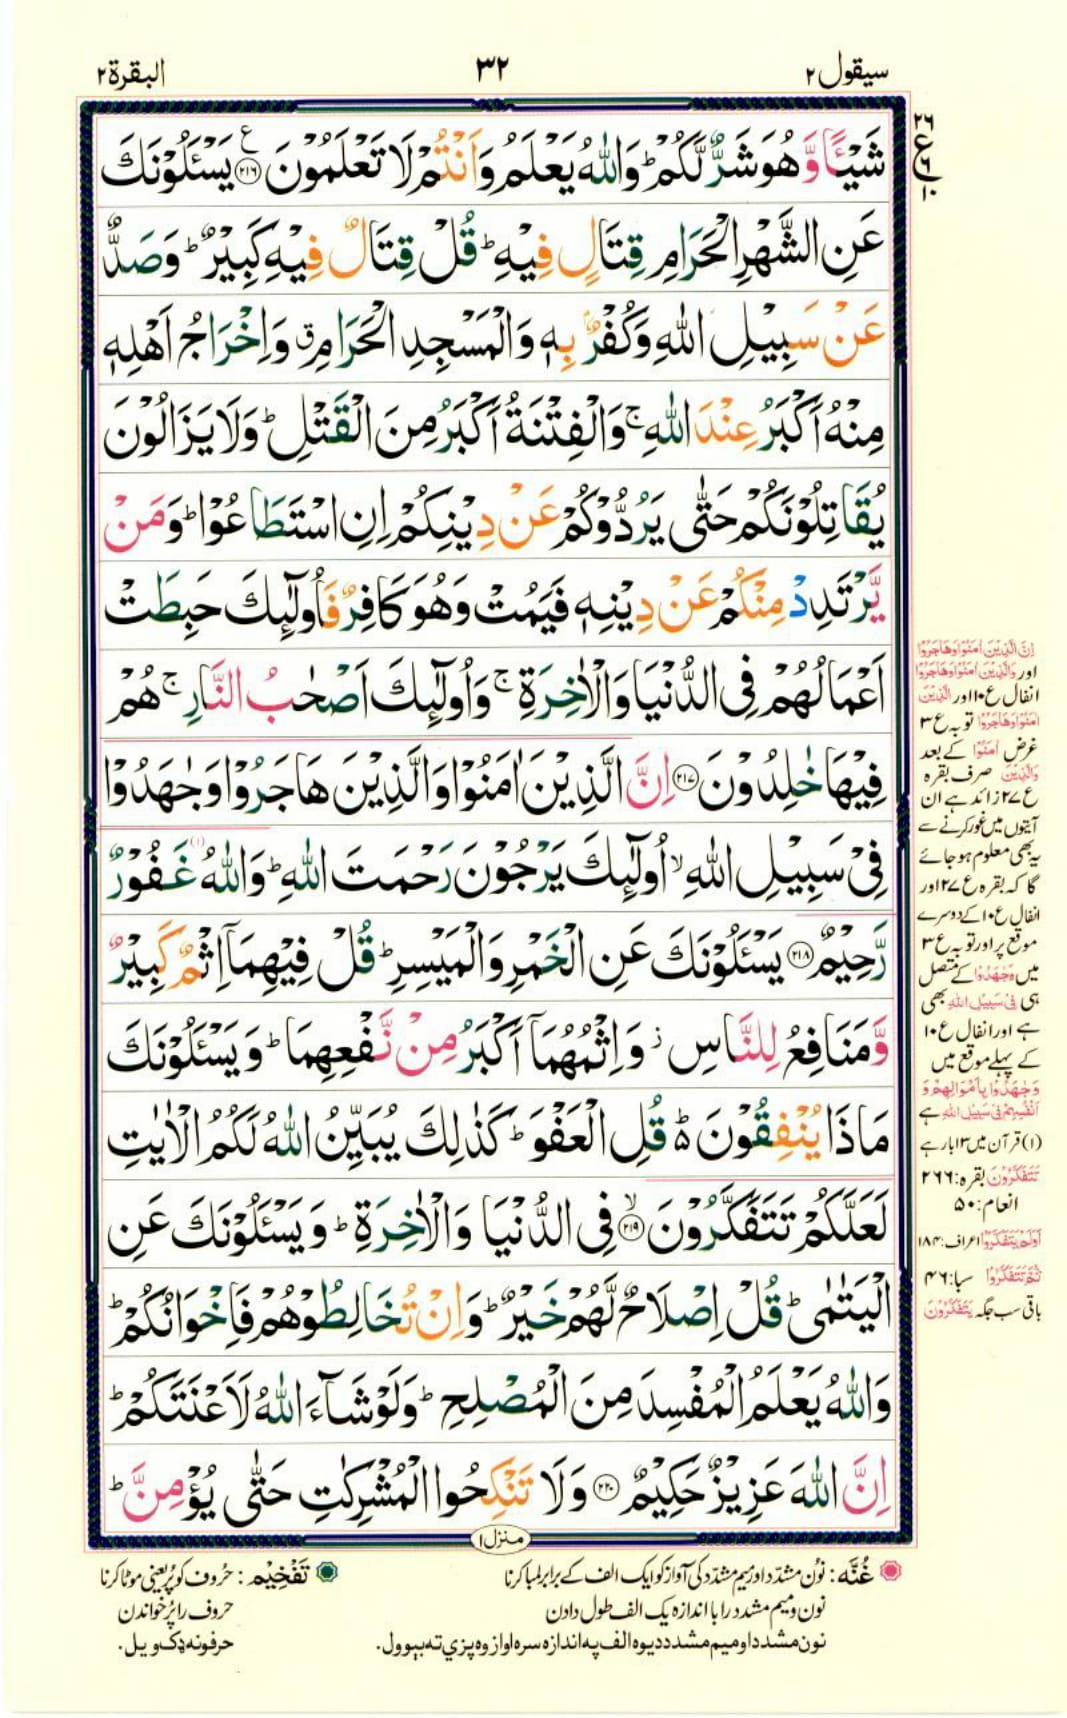 سیقول ٢
٣٢
البقرة ٢
شَيْـًٔا وَّ هُوَ شَرٌّ لَّكُمْ ؕ وَاللّٰهُ يَعْلَمُ وَاَنْتُمْ لَا تَعْلَمُوْنَ ۧ﴿٢١٦﴾ يَسْـَٔلُوْنَكَ
عَنِ الشَّهْرِ الْحَرَامِ قِتَالٍ فِيْهِ ؕ قُلْ قِتَالٌ فِيْهِ كَبِيْرٌ ؕ وَصَدٌّ
عَنْ سَبِيْلِ اللّٰهِ وَكُفْرٌۢ بِهٖ وَالْمَسْجِدِ الْحَرَامِ ق وَاِخْرَاجُ اَهْلِهٖ
مِنْهُ اَكْبَرُ عِنْدَ اللّٰهِ ۚ وَالْفِتْنَةُ اَكْبَرُ مِنَ الْقَتْلِ ؕ وَلَا يَزَالُوْنَ
يُقَاتِلُوْنَكُمْ حَتّٰى يَرُدُّوْكُمْ عَنْ دِيْنِكُمْ اِنِ اسْتَطَاعُوْا ؕ وَمَنْ
يَّرْتَدِدْ مِنْكُمْ عَنْ دِيْنِهٖ فَيَمُتْ وَهُوَ كَافِرٌ فَاُولٰٓئِكَ حَبِطَتْ
اَعْمَالُهُمْ فِى الدُّنْيَا وَالْاٰخِرَةِ ۚ وَاُولٰٓئِكَ اَصْحٰبُ النَّارِ ۚ هُمْ
فِيْهَا خٰلِدُوْنَ ﴿٢١٧﴾ اِنَّ الَّذِيْنَ اٰمَنُوْا وَالَّذِيْنَ هَاجَرُوْا وَجٰهَدُوْا
فِىْ سَبِيْلِ اللّٰهِ ۙ اُولٰٓئِكَ يَرْجُوْنَ رَحْمَتَ اللّٰهِ ؕ وَاللّٰهُ غَفُوْرٌ
رَّحِيْمٌ ﴿٢١٨﴾ يَسْـَٔلُوْنَكَ عَنِ الْخَمْرِ وَالْمَيْسِرِ ؕ قُلْ فِيْهِمَاۤ اِثْمٌ كَبِيْرٌ
وَّمَنَافِعُ لِلنَّاسِ ؗ وَاِثْمُهُمَاۤ اَكْبَرُ مِنْ نَّفْعِهِمَا ؕ وَيَسْـَٔلُوْنَكَ
مَاذَا يُنْفِقُوْنَ ؕ قُلِ الْعَفْوَ ؕ كَذٰلِكَ يُبَيِّنُ اللّٰهُ لَكُمُ الْاٰيٰتِ
لَعَلَّكُمْ تَتَفَكَّرُوْنَ ۙ﴿٢١٩﴾ فِى الدُّنْيَا وَالْاٰخِرَةِ ؕ وَيَسْـَٔلُوْنَكَ عَنِ
الْيَتٰمٰى ؕ قُلْ اِصْلَاحٌ لَّهُمْ خَيْرٌ ؕ وَاِنْ تُخَالِطُوْهُمْ فَاِخْوَانُكُمْ ؕ
وَاللّٰهُ يَعْلَمُ الْمُفْسِدَ مِنَ الْمُصْلِحِ ؕ وَلَوْ شَآءَ اللّٰهُ لَاَعْنَتَكُمْ ؕ
اِنَّ اللّٰهَ عَزِيْزٌ حَكِيْمٌ ﴿٢٢٠﴾ وَلَا تَنْكِحُوا الْمُشْرِكٰتِ حَتّٰى يُؤْمِنَّ ؕ
منزل ١
٢٦
ع
٦
١٠
اِنَّ الَّذِیْنَ اٰمَنُوْا وَهَاجَرُوْا
اور وَالَّذِیْنَ اٰمَنُوْا وَهَاجَرُوْا
انفال ع١٠ اور الَّذِیْنَ
اٰمَنُوْا وَهَاجَرُوْا توبہ ع٣
غرض اٰمَنُوْا کے بعد
وَالَّذِیْنَ صرف بقرہ
ع٢٧ زائد ہے ان
آیتوں میں غور کرنے سے
یہ بھی معلوم ہو جائے
گا کہ بقرہ ع٢٧ اور
انفال ع١٠ کے دوسرے
موقع پر اور توبہ ع٣
میں وَجٰهَدُوْا کے متصل
ہی فِیْ سَبِیْلِ اللّٰهِ بھی
ہے اور انفال ع١٠
کے پہلے موقع میں
وَجٰهَدُوْا بِاَمْوَالِهِمْ وَ
اَنْفُسِهِمْ فِیْ سَبِیْلِ اللّٰهِ ہے
(١) قرآن میں ١٣ بار ہے
تَتَفَكَّرُوْنَ بقرہ: ٢٦٦
انعام: ٥٠
اَوَلَمْ یَتَفَكَّرُوْا اعراف: ١٨٤
ثُمَّ تَتَفَكَّرُوْا سبا: ٤٦
باقی سب جگہ یَتَفَكَّرُوْنَ
غُنَّہ: نوُن مشدّد اور میم مشدّد کی آواز کو ایک الف کے برابر لمبا کرنا
نون و میم مشدد را با اندازہ یک الف طول دادن
نون مشدد او میم مشدد دیوہ الف پہ اندازہ سرہ اواز وہ پزي تہ بېوول.
تَفْخِیْم: حرُوف کو پُر یعنی موٹا کرنا
حروف را پُر خواندن
حرفونہ ډک ویل.